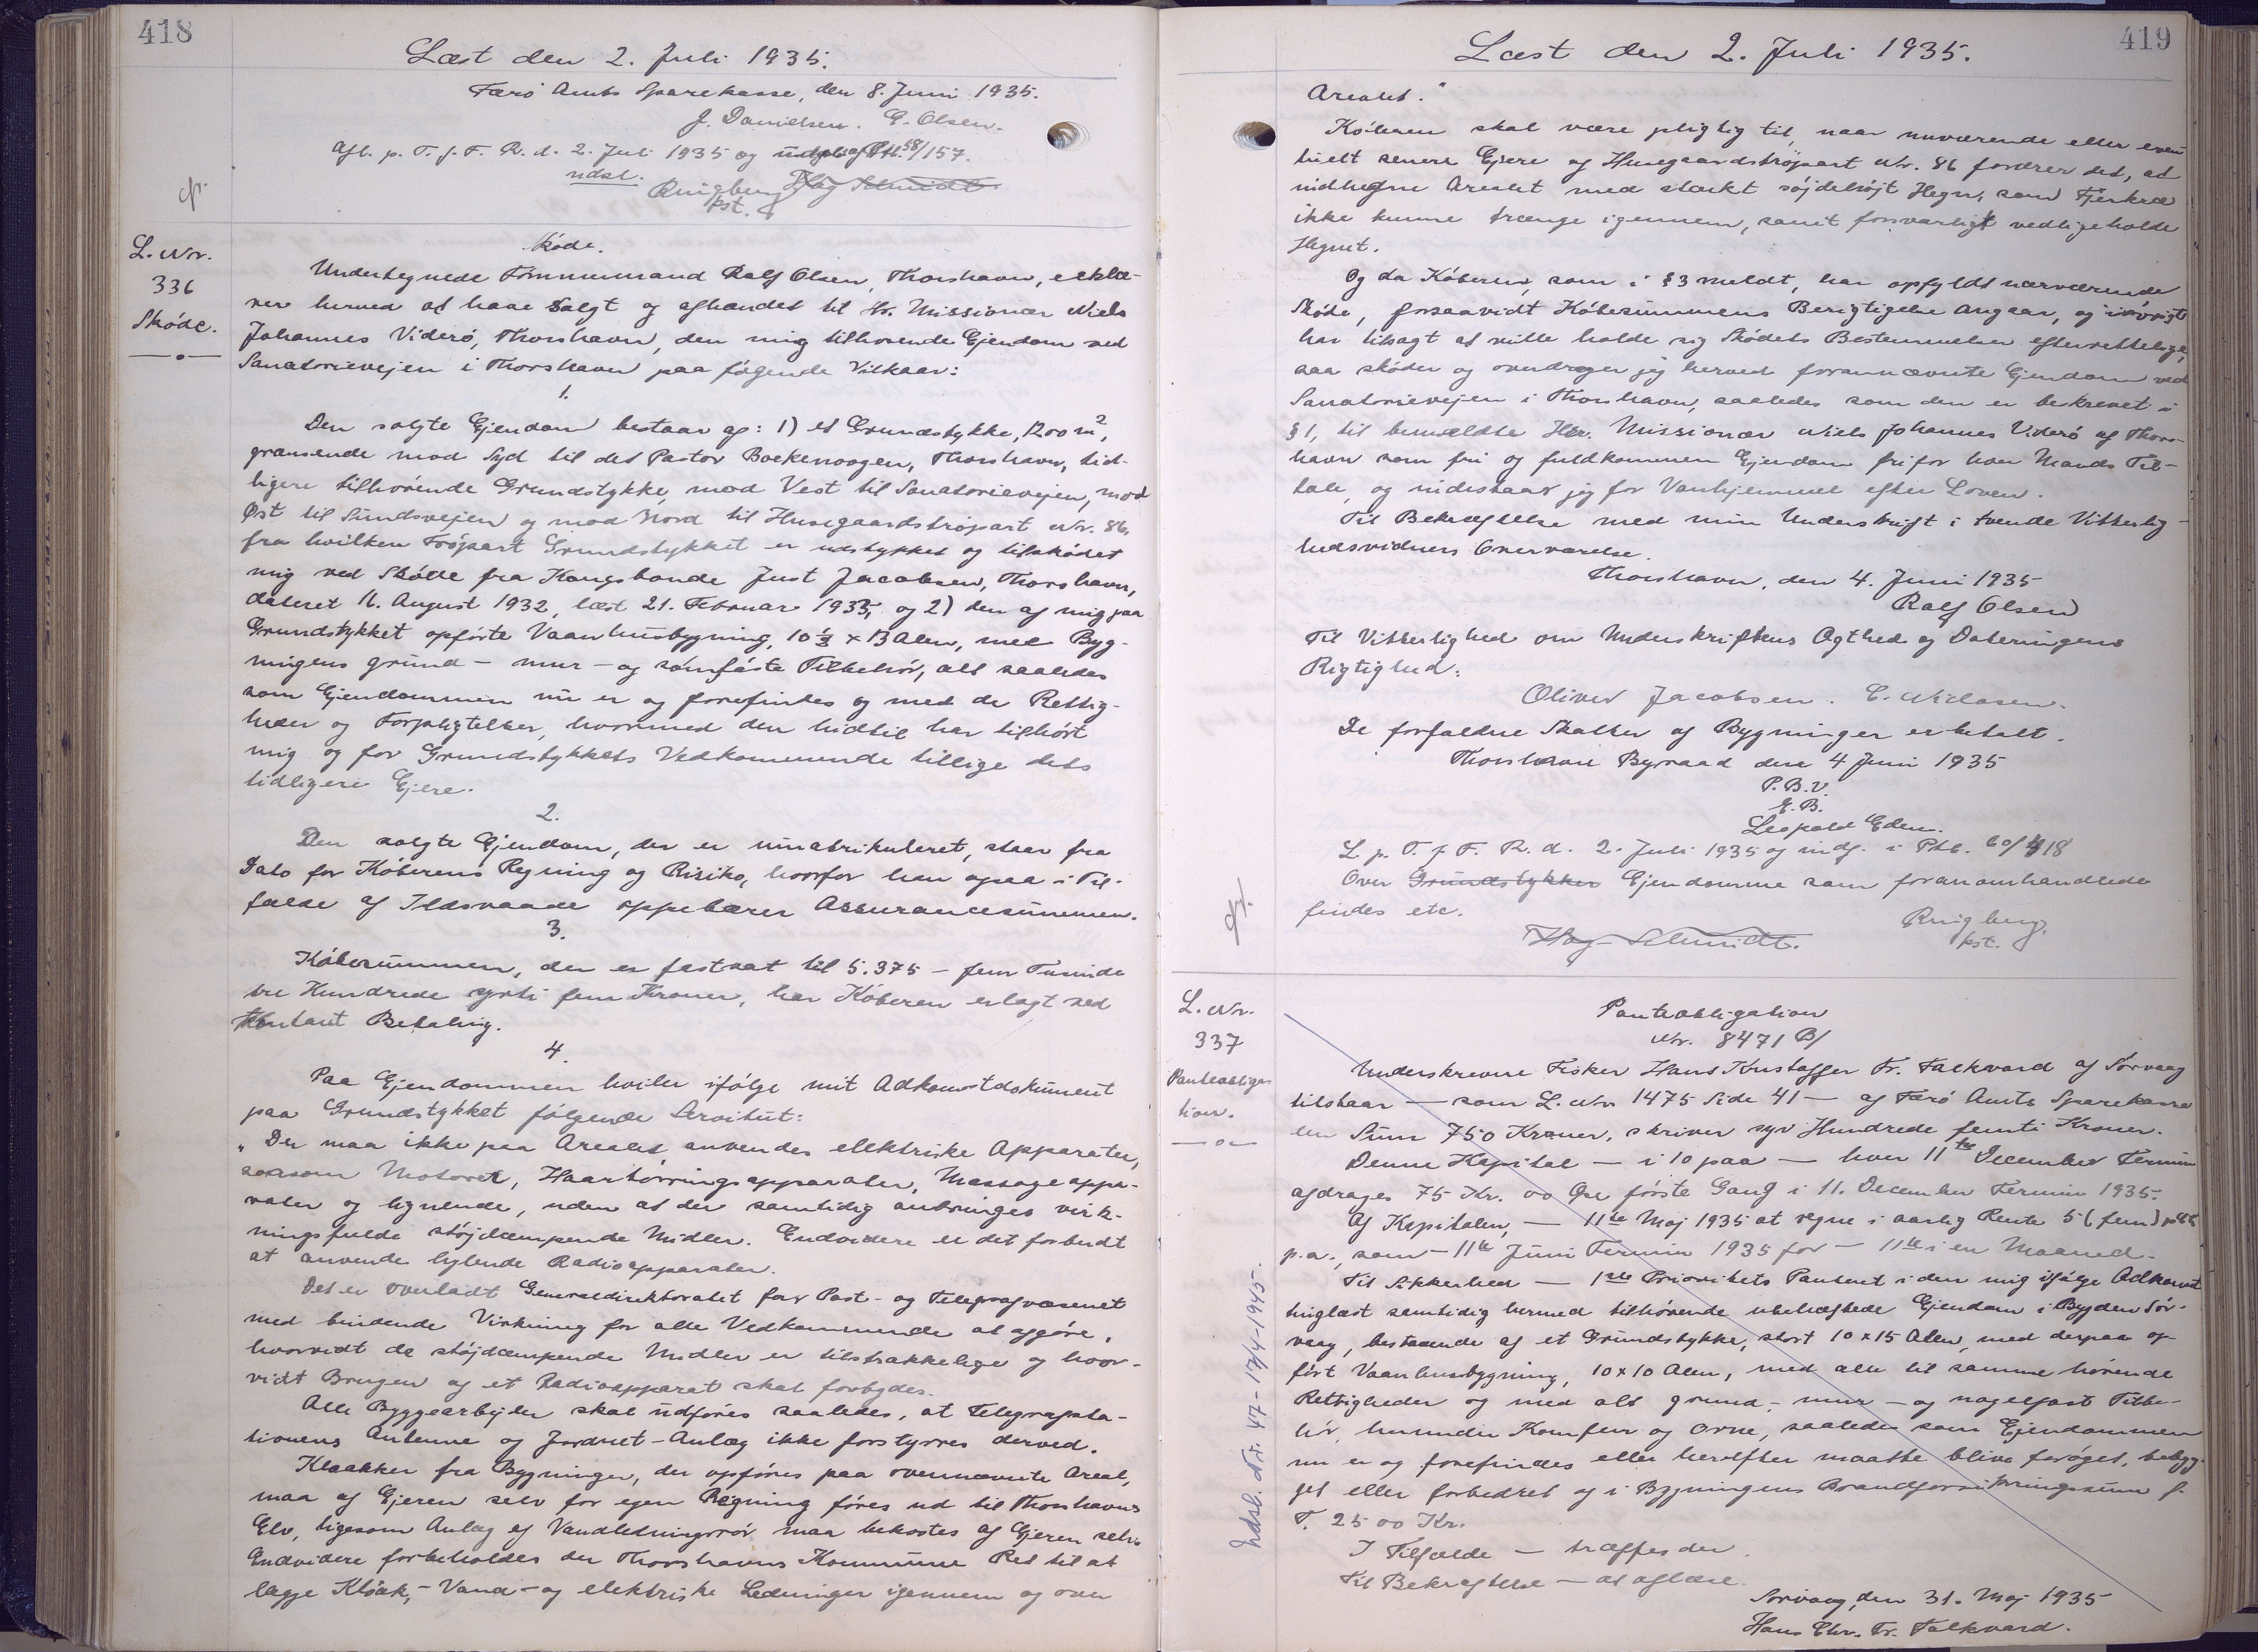 418
Læst den 2. Juli 1935.
Færø Amts Sparekasse, den 8. Juni 1935.
J. Danielsen. G. Olsen.
Afl. p. T. f. F. R. d. 2. Juli 1935 og 58/157.
udsl.
Ringberg Hag Schmidt
kst.
L. Nr.
336
Skøde.
Skøde.
Undertegnede Tømmermand Ralf Olsen, Thorshavn, erklæ-
rer herved at have solgt og afhændet til Hr. Missionær Niels
Johannes Viderø, Thorshavn, den mig tilhørende Ejendom ved
Sanatorievejen i Thorshavn paa følgende Vilkaar:
1.
Den solgte Ejendom bestaar af: 1) et Grundstykke, 1200 m²,
grænsende mod Syd til det Pastor Boekenoogen, Thorshavn, tid-
ligere tilhørende Grundstykke, mod Vest til Sanatorievejen, mod
Øst til Sundsvejen og mod Nord til Husegaardstrøpart Nr. 86,
fra hvilken Trøpart Grundstykket er udstykket og tilskødet
mig ved Skøde fra Kongsbonde Just Jacobsen, Thorshavn,
dateret 16. August 1932, læst 21. Februar 1935, og 2) den af mig paa
Grundstykket opførte Vaanhusbygning, 10⅓ x 13 Alen, med Byg-
ningens grund- mur- og sømfaste Tilbehør, alt saaledes
som Ejendommen nu er og forefindes og med de Rettig-
heder og Forpligtelser, hvormed den hidtil har tilhørt
mig og for Grundstykkets Vedkommende tillige dets
tidligere Ejere.
2.
Den solgte Ejendom, der er umatrikuleret, staar fra
Dato for Køberens Regning og Risiko, hvorfor han ogsaa i Til-
fælde af Ildsvaade oppebærer Assurancesummen.
3.
Købesummen, der er fastsat til 5.375 - fem Tusinde
tre Hundrede syvti fem Kroner, har Køberen erlagt ved
kontant Betaling.
4.
Paa Ejendommen hviler ifølge mit Adkomstdokument
paa Grundstykket følgende Servitut:
"Der maa ikke paa Arealet anvendes elektriske Apparater,
saasom Motorer, Haartørringsapparater, Massageappa-
rater og lignende, uden at der samtidig anbringes virk-
ningsfulde støjdæmpende Midler. Endvidere er det forbudt
at anvende hylende Radioapparater.
Det er overladt Generaldirektoratet for Post- og Telegrafvæsenet
med bindende Virkning for alle Vedkommende at afgøre,
hvorvidt de støjdæmpende Midler er tilstrækkelige og hvor-
vidt Brugen af et Radioapparat skal forbydes.
Alle Byggearbejder skal udføres saaledes, at Telegrafsta-
tionens Antenne og Jordnet-Anlæg ikke forstyrres derved.
Kloakker fra Bygninger, der opføres paa overnævnte Areal,
maa af Ejeren selv for egen Regning føres ud til Thorshavns
Elv, ligesom Anlæg af Vandledningsrør maa bekostes af Ejeren selv.
Endvidere forbeholdes der Thorshavns Kommune Ret til at
lægge Kloak,- Vand- og elektriske Ledninger igennem og over
419
Læst den 2. Juli 1935.
Arealet."
Køberen skal være pligtig til, naar nuværende eller even-
tuelt senere Ejere af Husegaardstrøpart Nr. 86 fordrer det, at
indhegne Arealet med stærkt højt Hegn, som Fjerkræ
ikke kunne trænge igennem, samt forsvarligt vedligeholde
Hegnet.
Og da Køberen, som i § 3 meldt, har opfyldt nærværende
Skøde, forsaavidt Købesummens Berigtigelse angaar, og iøvrigt
har tilsagt at ville holde sig Skødets Bestemmelser efterrettelige,
saa skøder og overdrager jeg herved forannævnte Ejendom ved
Sanatorievejen i Thorshavn, saaledes som den er beskrevet i
§ 1, til bemeldte Hr. Missionær Niels Johannes Viderø af Thors-
havn som fri og fuldkommen Ejendom fri for hver Mands Til-
tale, og indestaar jeg for Vanhjemmel efter Loven.
Til Bekræftelse med min Underskrift i tvende Vitterlig-
hedsvidners Overværelse.
Thorshavn, den 4. Juni 1935
Ralf Olsen
Til Vitterlighed om Underskriftens Ægthed og Dateringens
Rigtighed:
Oliver Jacobsen. E. Niclasen.
De forfaldne Skatter af Bygninger er betalt.
Thorshavn Byraad den 4 Juni 1935
P. B. V.
E. B.
Leopold Eden.
L. p. T. f. F. R. d. 2. Juli 1935 og indf. i Ptb. 60/418
Over Grundstykker Ejendomme som foranomhandlede
findes etc.
Hag-Schmidt. Ringberg.
kst.
L. Nr.
337
Panteobliga-
tion.
Panteobligation
Nr. 8471 B/
Underskrevne Fisker Hans Kristoffer Fr. Falkvard af Sørvaag
tilstaar - som L. Nr. 1475 Side 41 - af Færø Amts Sparekasse
den Sum 750 Kroner, skriver syv Hundrede femti Kroner.
Denne Kapital - i 10 paa - hver 11te December Termin
afdrages 75 Kr. 00 Øre første Gang i 11. December Termin 1935.
Af Kapitalen, - 11te Maj 1935 at regne i aarlig Rente 5 (fem) pct
p.a., som - 11te Juni Termin 1935 for - 11te i en Maaned.
Til Sikkerhed - 1ste Prioritets Panteret i den mig ifølge Adkomst
tinglæst samtidig hermed tilhørende ubehæftede Ejendom i Bygden Sør-
vaag, bestaaende af et Grundstykke, stort 10 x 15 Alen, med derpaa op-
ført Vaanhusbygning, 10 x 10 Alen, med alle til samme hørende
Rettigheder og med alt grund,- mur- og nagelfast Tilbe-
hør, herunder Komfur og Ovne, saaledes som Ejendommen
nu er og forefindes eller herefter maatte blive forøget, bebyg-
get eller forbedret og i Bygningens Brandforsikringssum f.
T. 2500 Kr.
I Tilfælde - træffes der.
Til Bekræftelse - at aflæse.
Sørvaag, den 31. Maj 1935
Hans Chr. Fr. Falkvard.
Udsl. Nr. 47 - 17/4-1945.